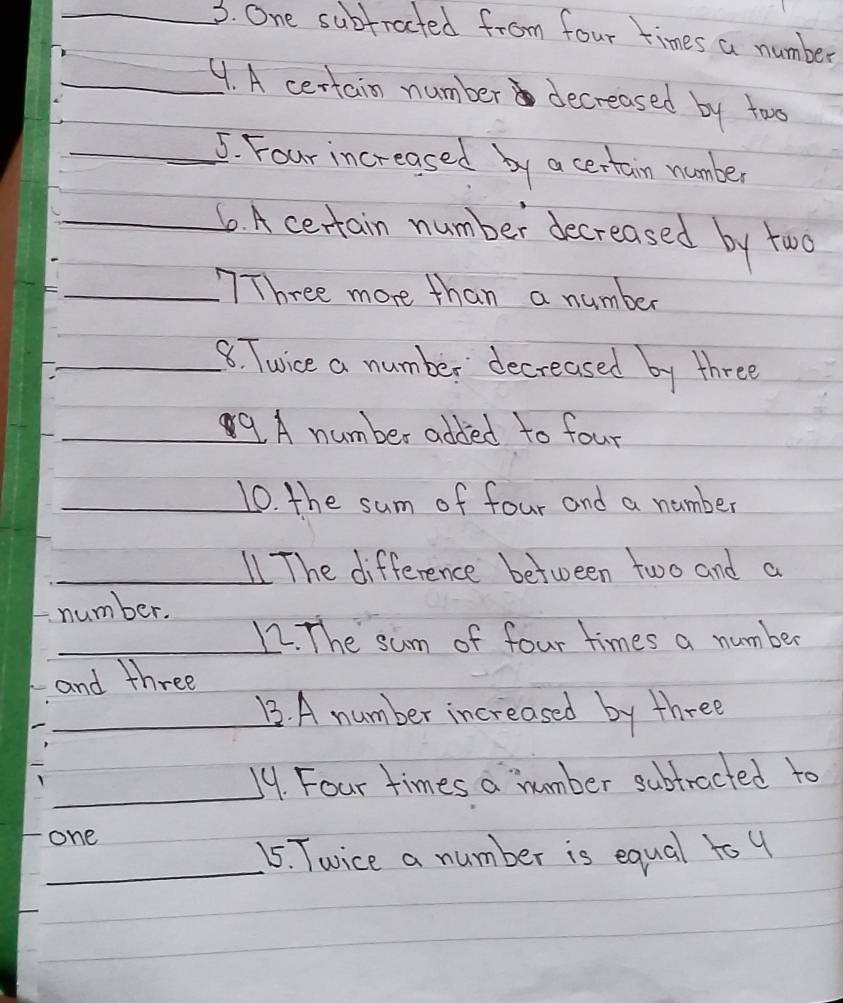 3. One subtracted from four times a number
4. A certain number decreased by two
5. Four increased by a certain number
6. A certain number decreased by two
7 Three more than a number
8. Twice a number decreased by three
9 A number added to four
10. the sum of four and a number
11 The difference between two and a
number.
12. The sum of four times a number
and three
13. A number increased by three
14. Four times a number subtracted to
one
15. Twice a number is equal to 4